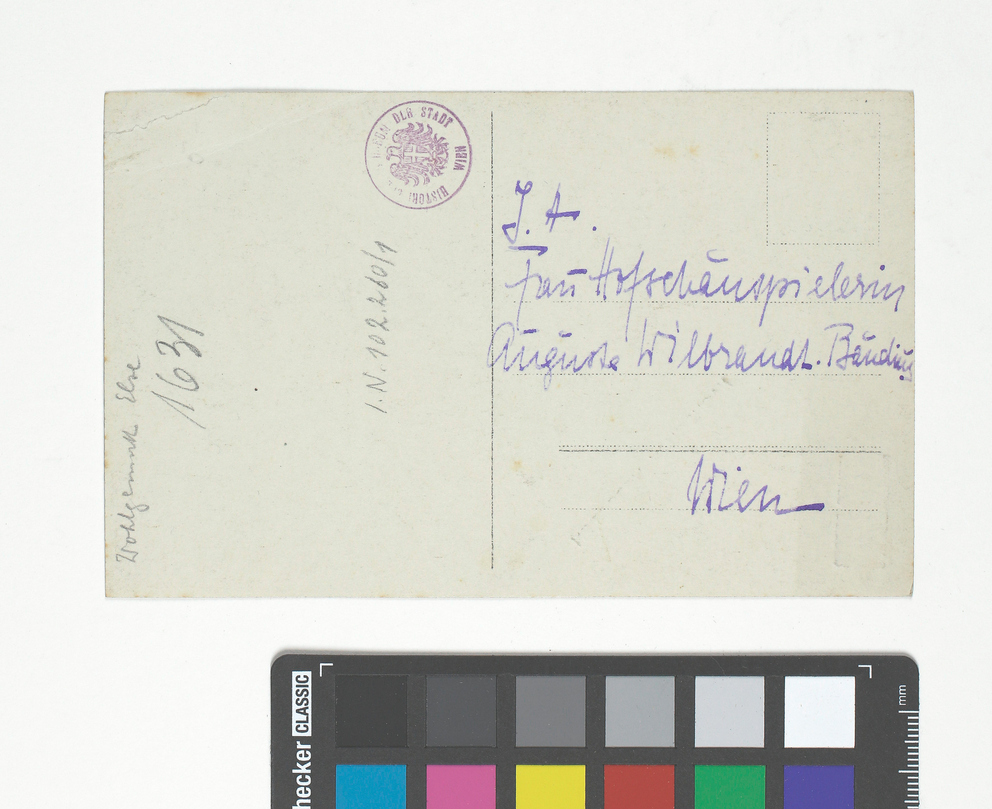 Wohlgemuth Else
1631
I.N. 102.260/1
MUSEUM DER STADT WIEN HISTORI
I. H.
Frau Hofschauspielerin
Auguste Wilbrandt-Baudius
Wien
checker CLASSIC
mm